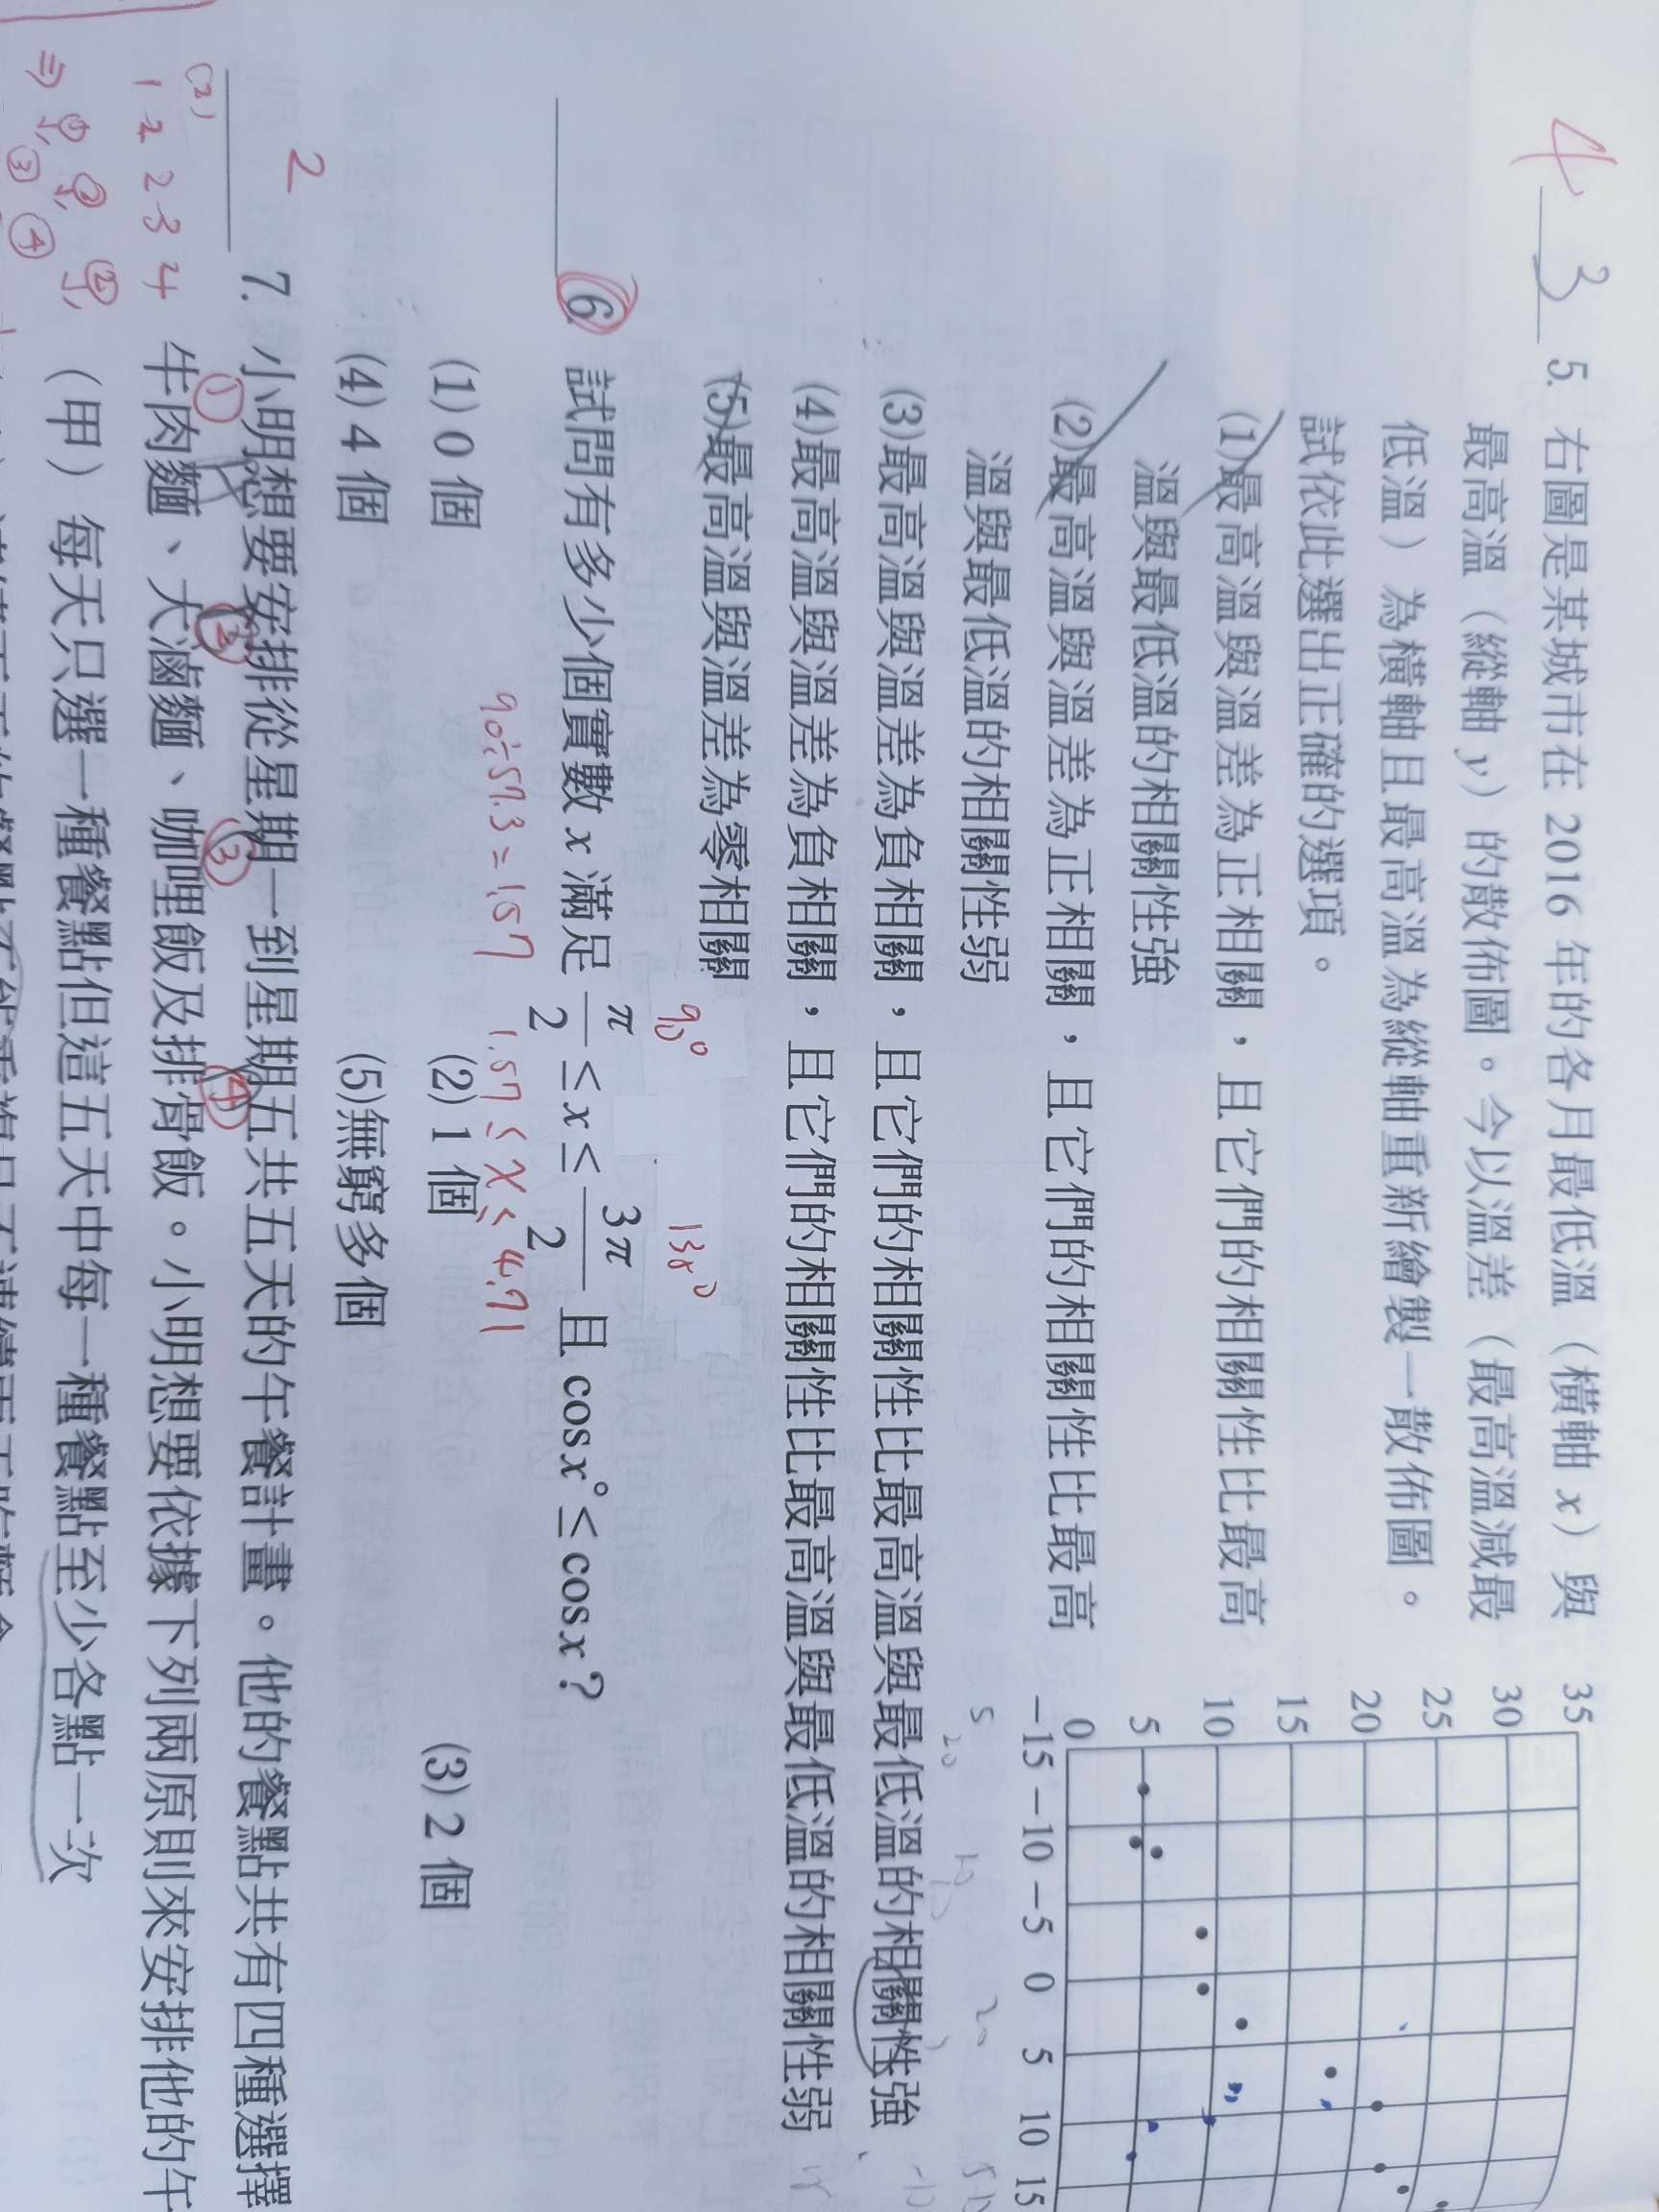 4 3 5. 右圖是某城市在 2016 年的各月最低溫(橫軸 x)與
最高溫(縱軸 y)的散佈圖。今以溫差(最高溫減最
低溫)為橫軸且最高溫為縱軸重新繪製一散佈圖。
試依此選出正確的選項。
(1)最高溫與溫差為正相關,且它們的相關性比最高
溫與最低溫的相關性強
(2)最高溫與溫差為正相關,且它們的相關性比最高
溫與最低溫的相關性弱
(3)最高溫與溫差為負相關,且它們的相關性比最高溫與最低溫的相關性強
(4)最高溫與溫差為負相關,且它們的相關性比最高溫與最低溫的相關性弱
(5)最高溫與溫差為零相關
35
30
25
20
15
10
5
0
-15 -10 -5 0 5 10 15
90°
6. 試問有多少個實數 x 滿足 π/2 ≤ x ≤ 3π/2 且 cos x° ≤ cos x?
90÷57.3=1.57 1.57 ≤ x ≤ 4.71
(1) 0 個 (2) 1 個 (3) 2 個
(4) 4 個 (5)無窮多個
2 7. 小明想要安排從星期一到星期五共五天的午餐計畫。他的餐點共有四種選擇
① ② ③ ④
牛肉麵、大滷麵、咖哩飯及排骨飯。小明想要依據下列兩原則來安排他的午
(2)
1 2 2 3 4
(甲)每天只選一種餐點但這五天中每一種餐點至少各點一次